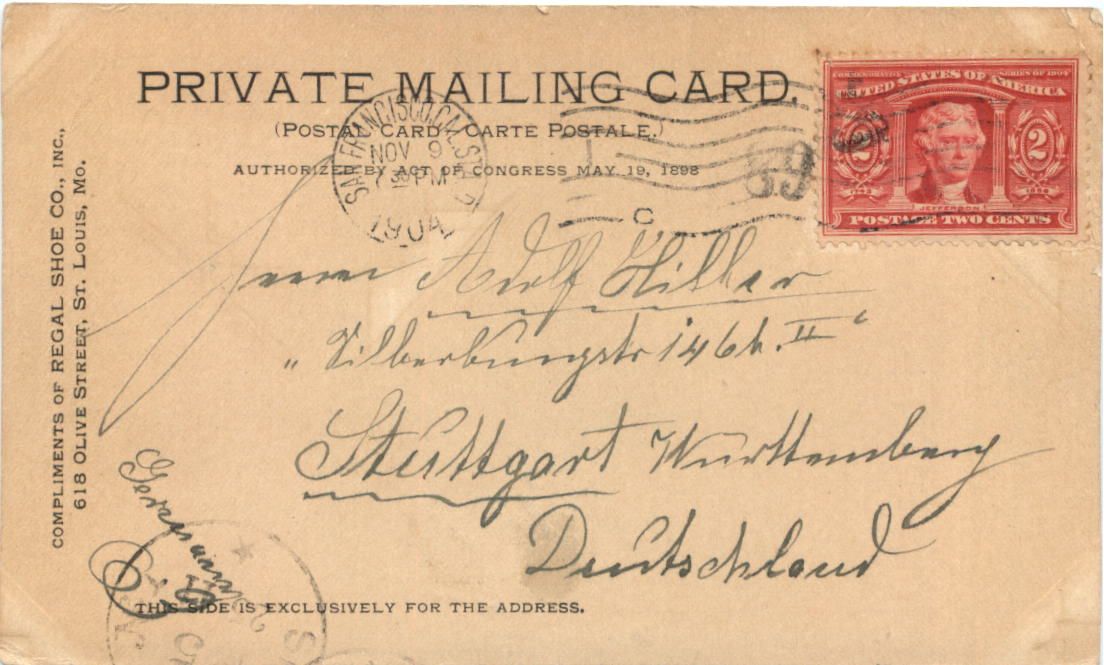 PRIVATE MAILING CARD.
(POSTAL CARD—CARTE POSTALE.)
AUTHORIZED BY ACT OF CONGRESS MAY 19, 1898
SAN FRANCISCO, CAL.
NOV 9
PM
1904
C
COMMEMORATIVE SERIES OF 1904
UNITED STATES OF AMERICA
2 2
1803 1904
JEFFERSON
POSTAGE TWO CENTS
COMPLIMENTS OF REGAL SHOE CO., INC.,
618 OLIVE STREET, ST. LOUIS, MO.
Herrn Adolf Hiller
"Silberburgstr 146 b. II"
Stuttgart Württemberg
Deutschland
Germany
THIS SIDE IS EXCLUSIVELY FOR THE ADDRESS.